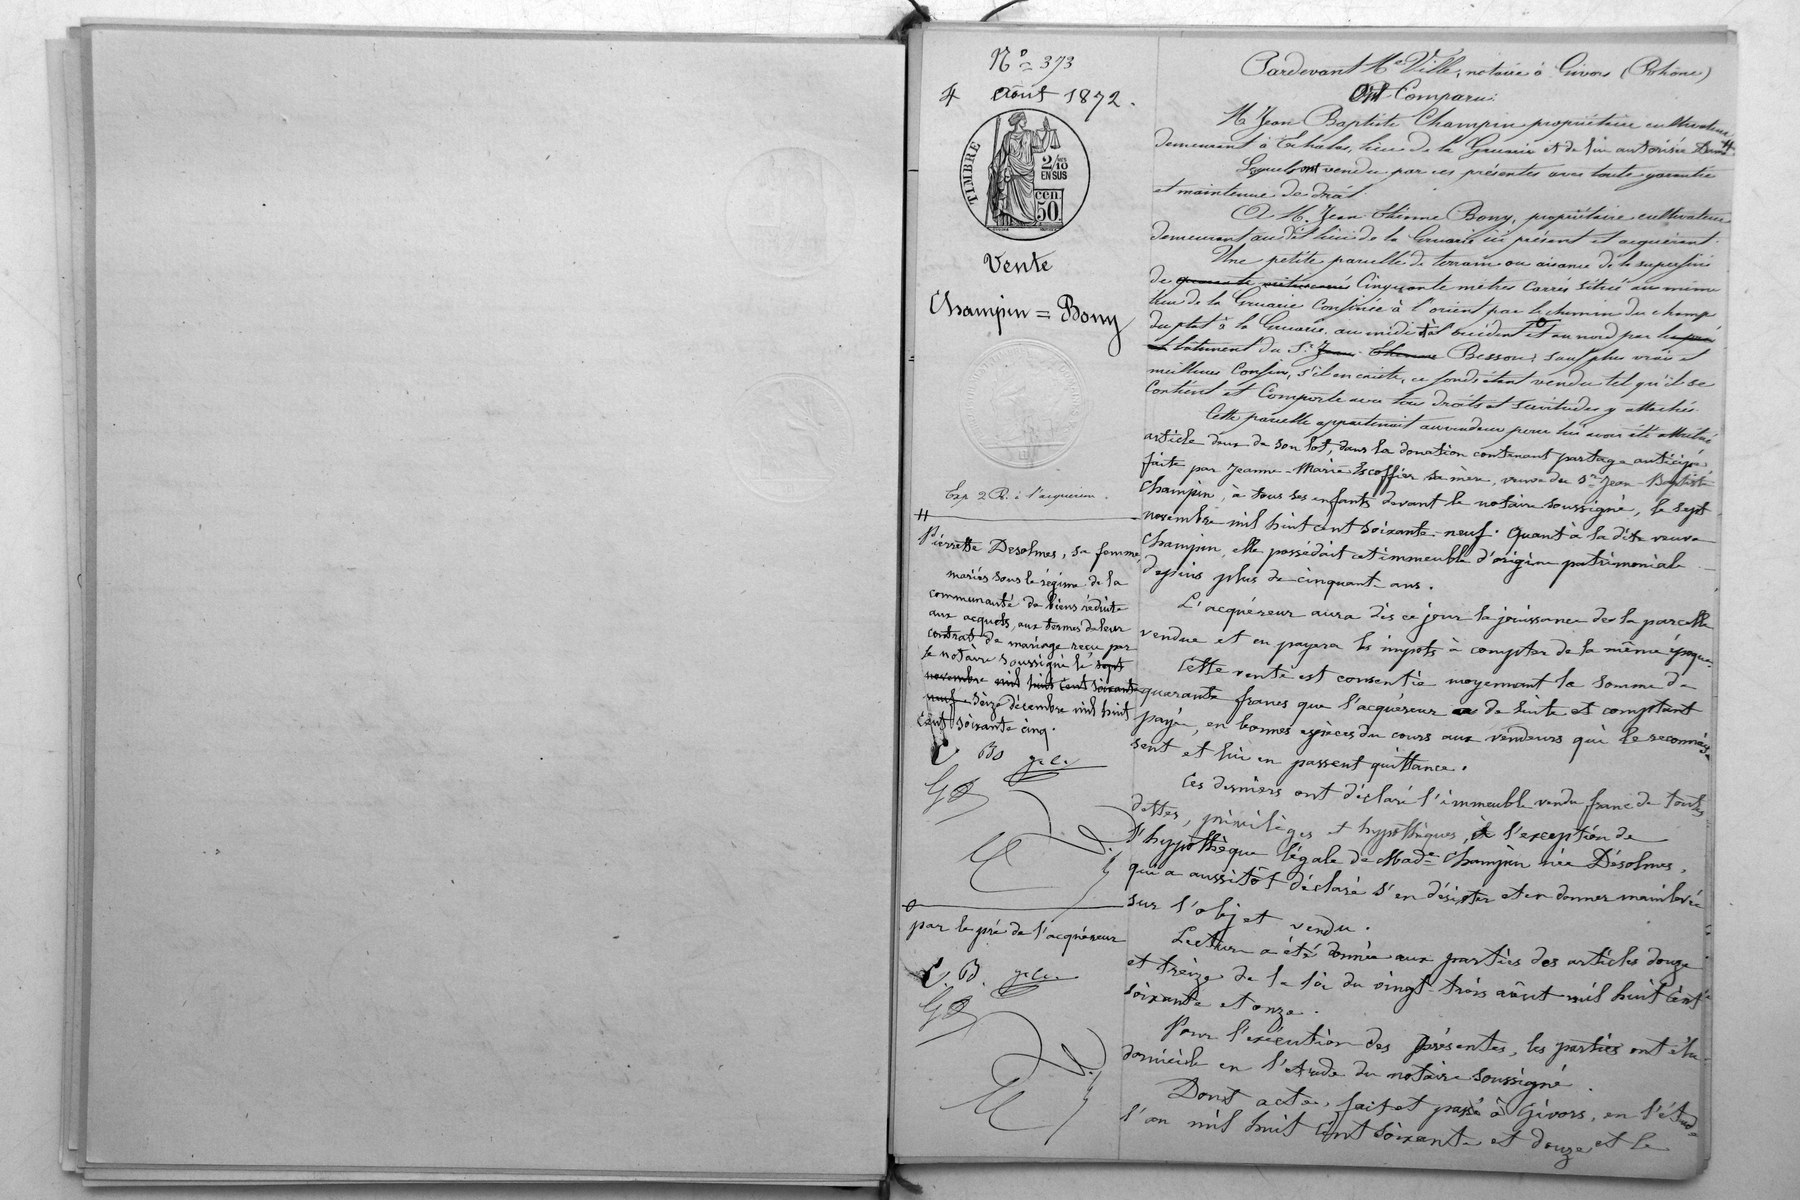 N° 373
4 Août 1872.
TIMBRE
2/10
EN SUS
50
Vente
Champin = Bony
Exp 2 R. à l'acquéreur.
Pierrette Desolmes, sa femme,
mariés sous le régime de la
communauté de biens réduite
aux acquets, aux termes de leur
contrat de mariage reçu par
le notaire soussigné le sept
novembre mil huit cent soixante
neuf seize décembre mil huit
cent soixante cinq.
par le pré de l'acquéreur
Pardevant Me Ville, notaire à Givors (Rhône)
Ont Comparu:
M. Jean Baptiste Champin propriétaire cultivateur
demeurant à Echalas, lieu de la Gruarie et de lui autorisée Dame
Lesquels ont vendu par ces présentes avec toute garantie
et maintenue de droit
A M. Jean Etienne Bony, propriétaire cultivateur
demeurant au dit lieu de la Gruarie ici présent et acquérant.
Une petite parcelle de terrain ou aisance de la superficie
de Cinquante mètres carrés située au même
lieu de la Gruarie Confinée à l'orient par le chemin du champ
du plat à la Gruarie, au midi et à l'occident et au nord par le pré
et bâtiment du Sr Jean Etienne Besson; sauf plus vrais et
meilleurs Confins, s'il en existe, ce fonds étant vendu tel qu'il se
Contient et Comporte avec tous droits et servitudes y attachés.
Cette parcelle appartenait au vendeur pour lui avoir été attribué
article deux de son lot, dans la donation contenant partage anticipé
faite par Jeanne-Marie Escoffier sa mère, veuve du Sr Jean-Baptiste
Champin, à tous ses enfants devant le notaire soussigné, le sept
novembre mil huit cent soixante-neuf. Quant à la dite veuve
Champin, elle possédait cet immeuble d'origine patrimoniale
depuis plus de cinquante ans.
L'acquéreur aura dès ce jour la jouissance de la parcelle
vendue et en payera les impots à compter de la même époque.
Cette vente est consentie moyennant la somme de
quarante francs que l'acquéreur a de suite et comptant
payée, en bonnes espèces du cours aux vendeurs qui le reconnais-
sent et lui en passent quittance.
Ces derniers ont déclaré l'immeuble vendu franc de toutes
dettes, privilèges et hypothèques, à l'exception de
l'hypothèque légale de Made Champin née Désolmes,
qui a aussitôt déclaré s'en désister et en donner mainlevée
sur l'objet vendu.
Lecture a été donnée aux parties des articles douze
et treize de la loi du vingt-trois août mil huit cent
soixante et onze.
Pour l'exécution des présentes, les parties ont élu
domicile en l'étude du notaire soussigné.
Dont acte, fait et passé à Givors, en l'étude
l'an mil huit cent soixante et douze et le